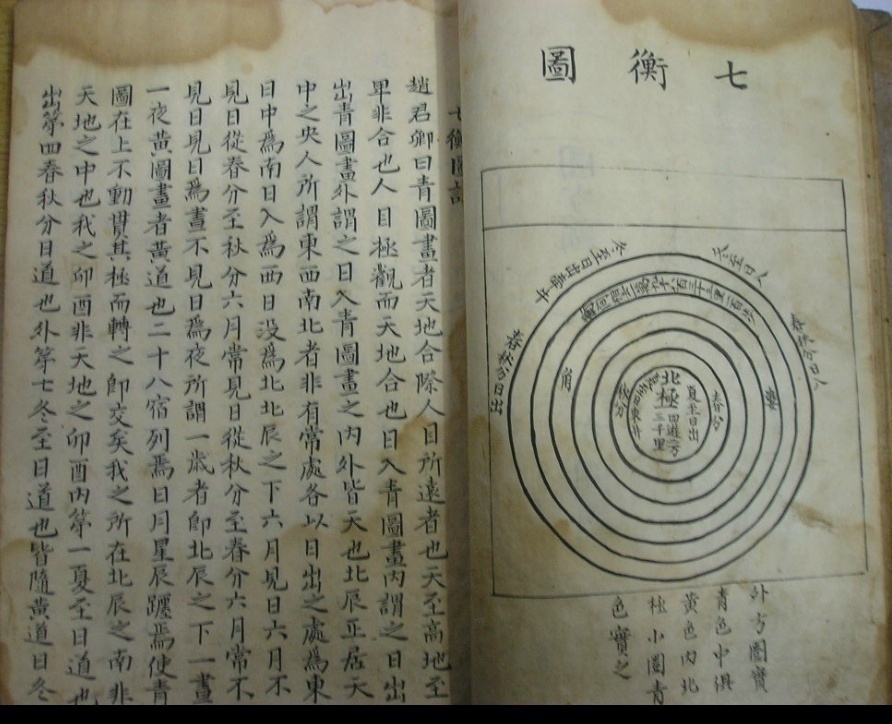 七衡圖
冬至日入
冬至日出牽牛
春秋分日入
春秋分日出
婁
角
春分
夏至日出
北極
四遊二万
三千里
外方圖實
青色中俱
黃色內北
極小圈青
色實之
七衡圖
趙君卿曰青圖畫者天地合際人目所遠者也天至高地至
卑非合也人目極觀而天地合也日入青圖畫內謂之日出
出青圖畫外謂之日入青圖畫之內外皆天也北辰正居天
中之央人所謂東西南北者非有常處各以日出之處爲東
日中爲南日入爲西日没爲北北辰之下六月見日六月不
見日從春分至秋分六月常見日從秋分至春分六月常不
見日見日爲晝不見日爲夜所謂一歲者即北辰之下一晝
一夜黃圖畫者黃道也二十八宿列焉日月星辰躔焉使青
圖在上不動貫其極而轉之卽交矣我之所在北辰之南非
天地之中也我之卯酉非天地之卯酉内第一夏至日道也
出第四春秋分日道也外第七冬至日道也皆隨黃道日冬